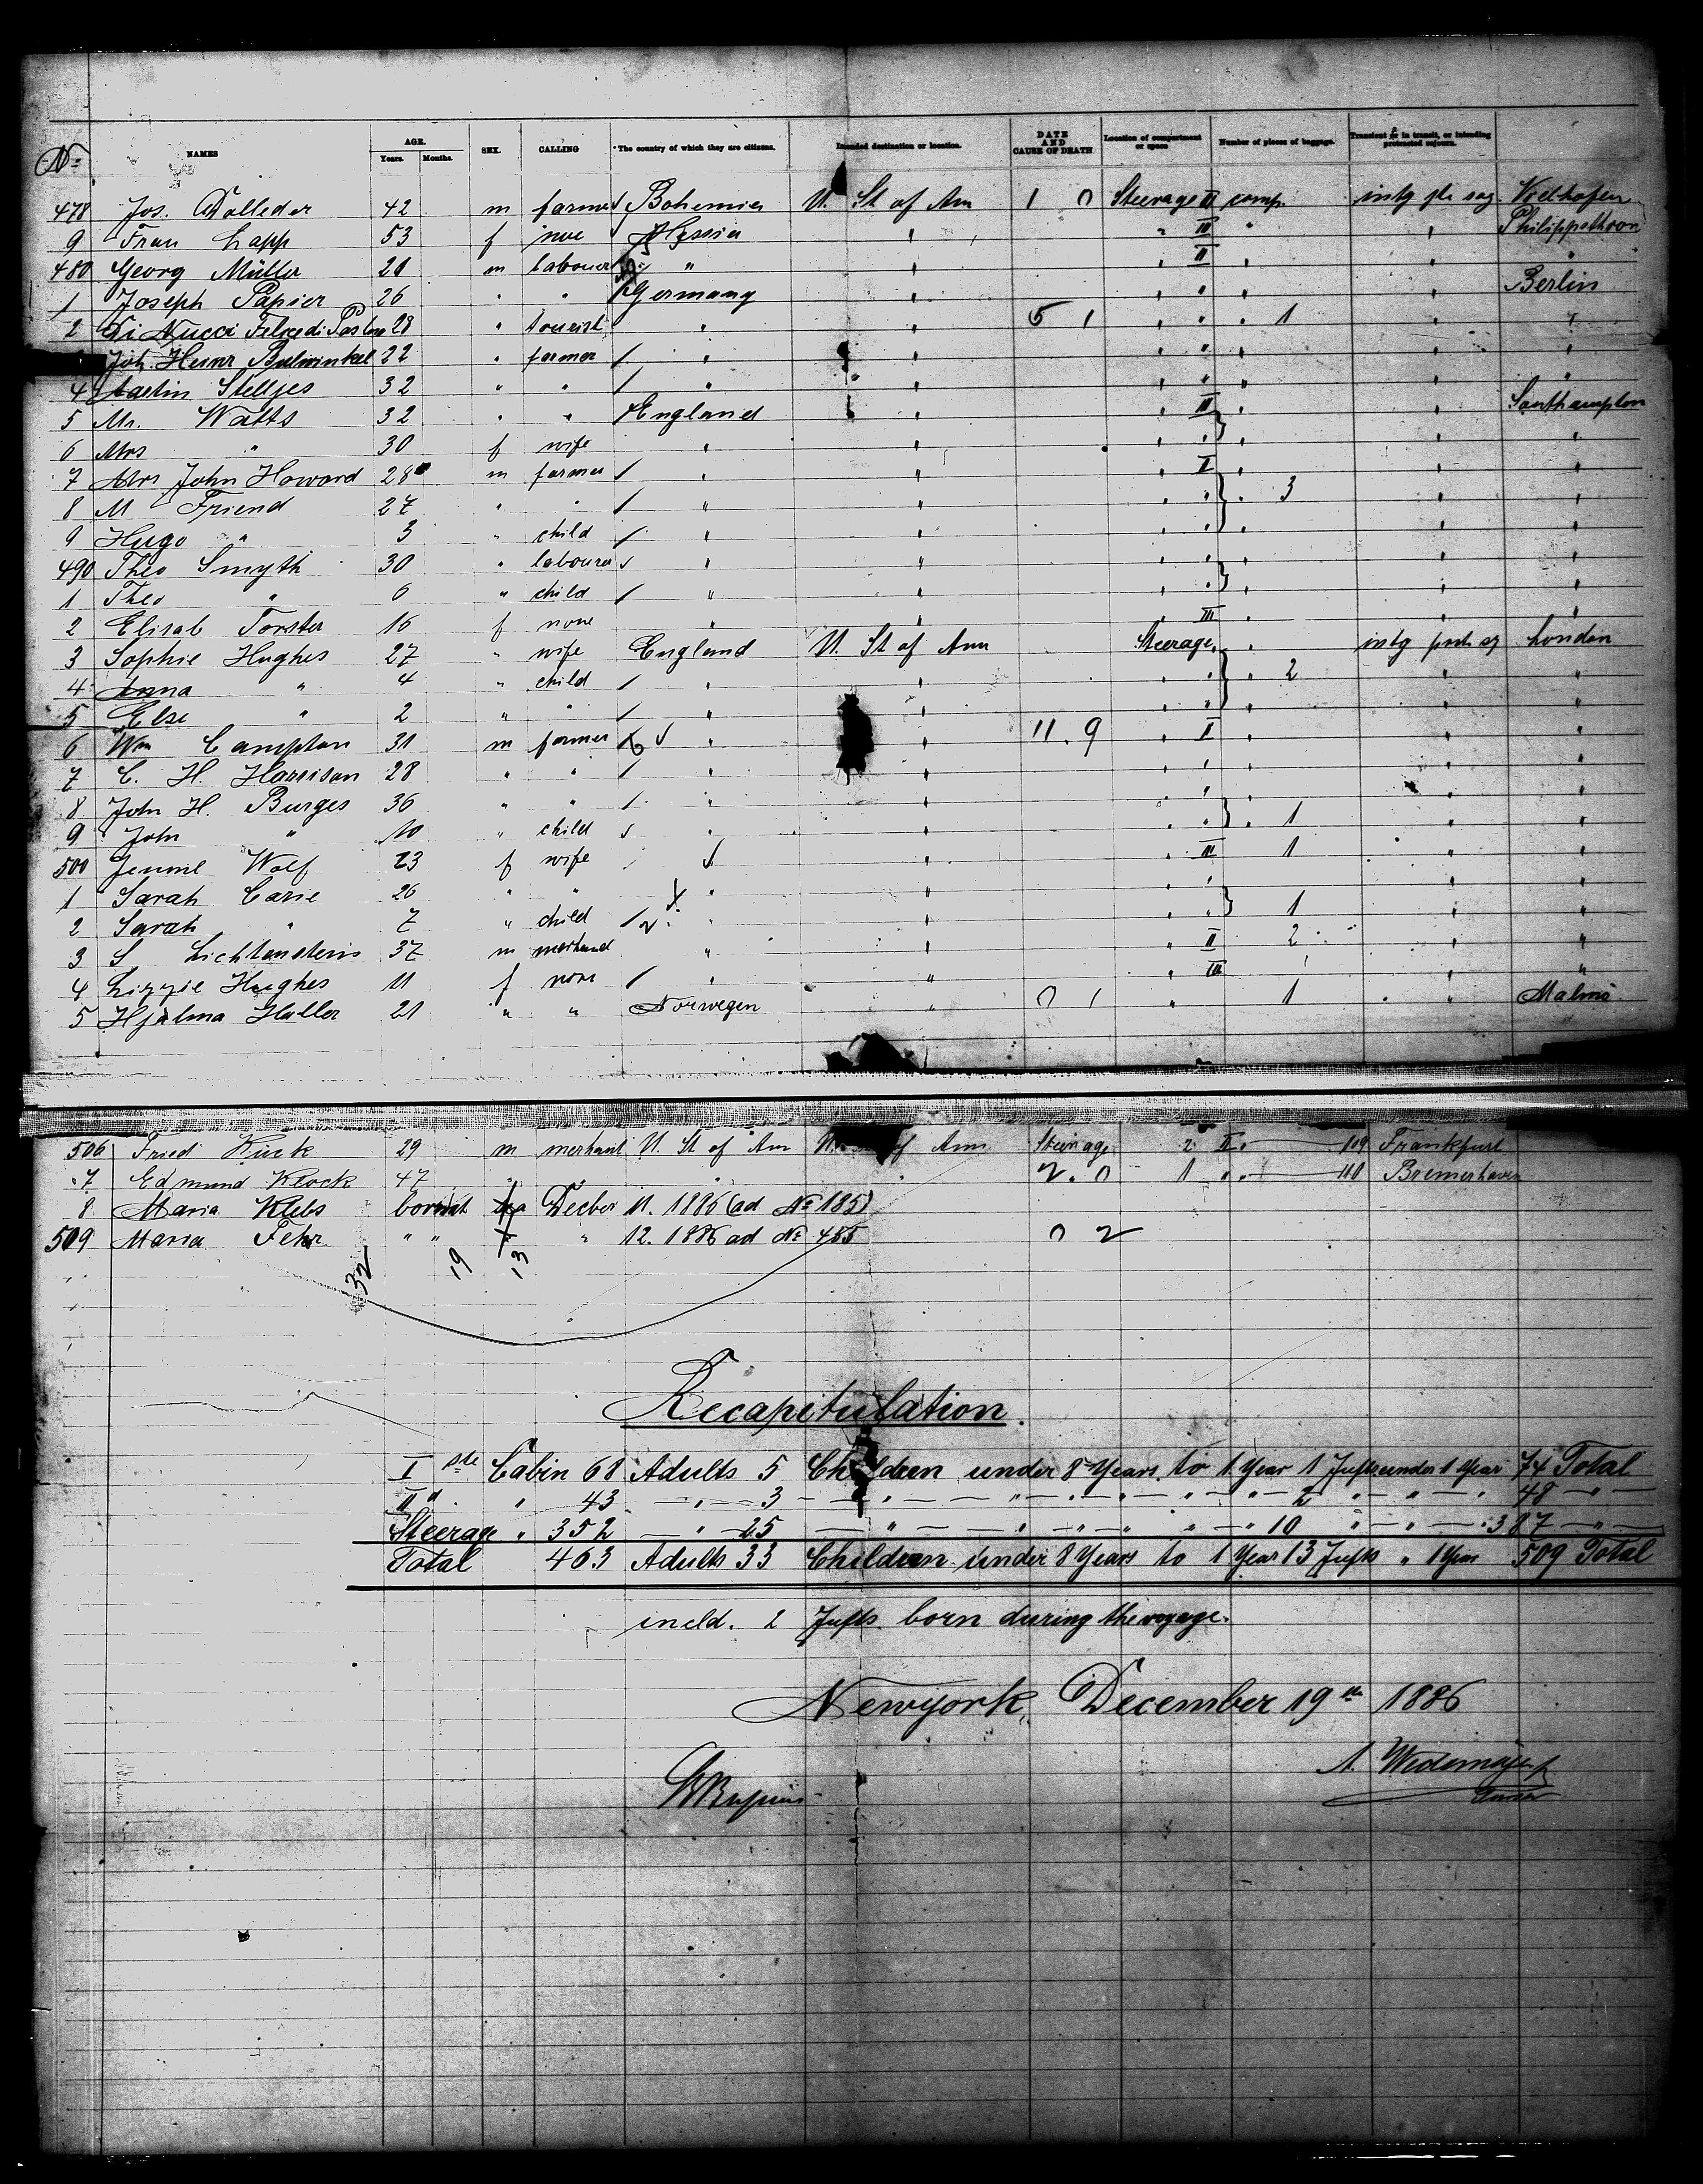 No
NAMES
AGE.
Years. Months.
SEX.
CALLING
*The country of which they are citizens.
Intended destination or location.
DATE AND CAUSE OF DEATH
Location of compartment or space
Number of pieces of baggage.
Transient or in transit, or intending protracted sojourn.
478 Jos. Dolleder 42 m farmer Bohemia U. St of Am 1 0 Steerage II comp.
9 Frau Lapp 53 f III "
480 Georg Müller 21 m labourer " " " II " "
1 Joseph Papier 26 " " Germany " " " " " Berlin
2 Di Nucci 28 " tourist " " 5 1 " " " 1 " "
Joh. Heinr Bulwinkel 22 " farmer " " " " " " "
4 Martin Stelljes 32 " " " " " " " " "
5 Mr. Watts 32 " " England " " III " " Southampton
6 Mrs " 30 f wife " " " " " " "
7 Mrs John Howard 28 m farmer " " " II " " "
8 M Friend 27 " " " " " " " 3 " "
9 Hugo " 3 " child " " " " " " "
490 Theo Smyth 30 " labourer " " " " " "
1 Theo " 6 " child " " " " " " "
2 Elisab Forster 16 f none " " " III " " "
3 Sophie Hughes 27 " wife England U. St of Am Steerage " London
4 Anna " 4 " child " " " " " 2 " "
5 Else " 2 " " " " " " " " "
6 Wm Campton 31 m farmer " " 11. 9 " II " " "
7 C. H. Harrison 28 " " " " " " " " "
8 John H. Burges 36 " " " " " " " "
9 John " 10 " child " " " " 1 " "
500 Jennie Wolf 23 f wife " " III 1 " "
1 Sarah Carie 26 " " " " " " " "
2 Sarah " 7 " child " " " " 1 " "
3 S Lichtenstein 37 m merchand " " " II 2 " "
4 Lizzie Hughes 11 f none " " " III " " "
5 Hjalma Haller 21 " " Norwegen " 0 1 " 1 " Malmö
506 Fried Kück 29 m merchant U. St of Am of Am Steerage 2 II 109 Frankfurt
7 Edmund Klock 47 " " " " 2. 0 1 " " 110 Bremerhaven
8 Maria Klebs born at sea Decber 11. 1886 (ad No 185)
509 Maria Fehr " " " 12. 1886 ad No 455 0 2
32 19 13
Recapitulation.
I ste Cabin 68 Adults 5 Children under 8 Years to 1 Year 1 Jufts under 1 Year 74 Total
II d " 43 " 3 " " " " " " " 2 " " " 48 "
Steerage " 352 " 25 " " " " " " 10 " " " 387 "
Total 463 Adults 33 Children under 8 Years to 1 Year 13 Jufts " 1 Year 509 Total
incld. 2 Jufts. born during the voyage.
Newyork, December 19th 1886